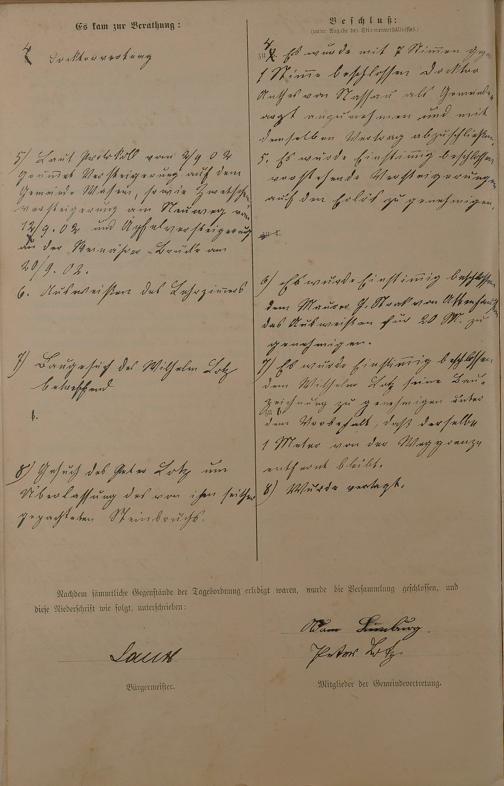 Es kam zur Berathung:
4 Doktorvertrag
5) Laut Protokoll vom 2/9 02
Grummet Versteigerung auf dem
Gemeinde Wasen, sowie Zwetschen
versteigerung am Neuweg vom
12/9.02 und Apfelversteigerung
an der Brücke am
20/9. 02.
6. Ausweißen des Lehrzimmers
7) Baugesuch des Wilhelm Lotz
betreffend
8) Gesuch des Peter Lotz um
Überlassung des von ihm seither
gepachteten Steinbruchs.
Beschluß:
(unter Angabe des Stimmenverhältnisses.)
4 Es wurde mit 7 Stimmen gegen
1 Stimme beschlossen Doktor
Anthes von Nassau als Gemeinde
arzt anzunehmen und mit
demselben Vertrag abzuschließen.
5. Es wurde Einstimmig beschlossen
vorstehende Versteigerungen
auf den Erlös zu genehmigen.
6) Es wurde Einstimmig beschlossen
dem Maurer J. von
das Ausweißen für 20 M. zu
genehmigen.
7) Es wurde Einstimmig beschlossen
dem Wilhelm Lotz seine Bau-
zeichnung zu genehmigen unter
dem Vorbehalt, daß derselbe
1 Meter von der Weggrenze
entfernt bleibt.
8) Wurde vertagt.
Nachdem sämmtliche Gegenstände der Tagesordnung erledigt waren, wurde die Versammlung geschlossen, und
diese Niederschrift wie folgt, unterschrieben:
Peter Lotz
Bürgermeister.
Mitglieder der Gemeindevertretung.